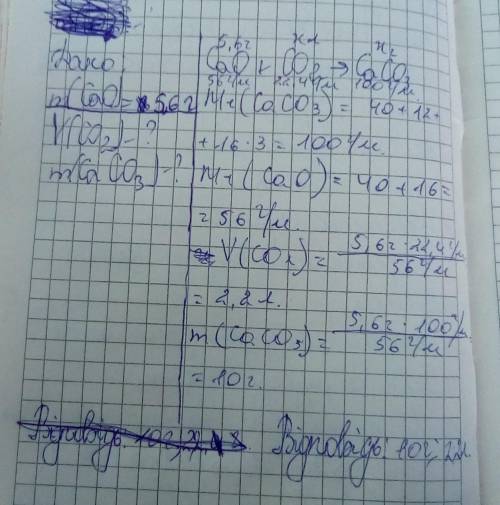 Дано
m(CaO)=5,6г
V(CO₂)-?
m(CaCO₃)-?
5,6г x л x г
CaO + CO₂ → CaCO₃
56г/м 22,4л/м 100г/м
Mr(CaCO₃)= 40+12+
+16·3=100г/м.
Mr(CaO)=40+16=
=56г/м.
V(CO₂)= 5,6г·22,4л/м
56г/м
=2,2л.
m(CaCO₃)= 5,6г·100г/м
56г/м
=10г.
Відповідь: 10г; 2л.